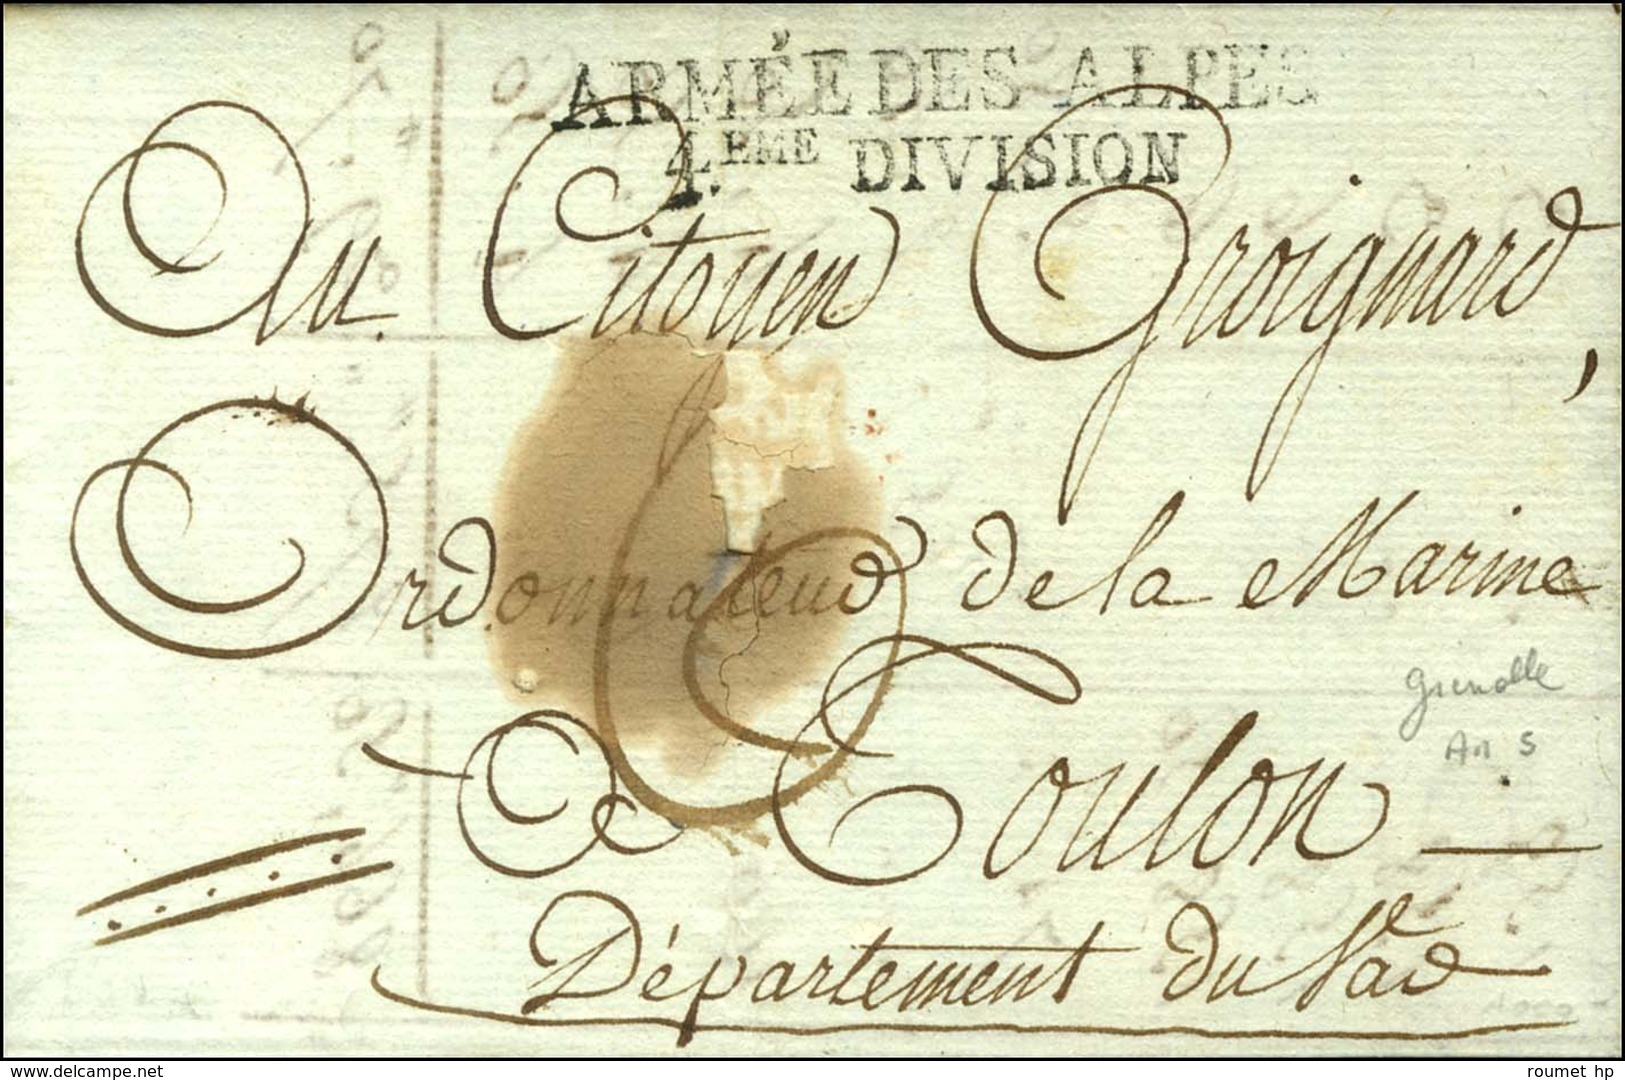 ARMÉE DES ALPES
4.EME DIVISION
Au Citoyen Groignard,
Ordonnateur de la Marine
A Toulon
Département du Var
6
Grenoble
An 5
www.delcampe.net
roumet hp